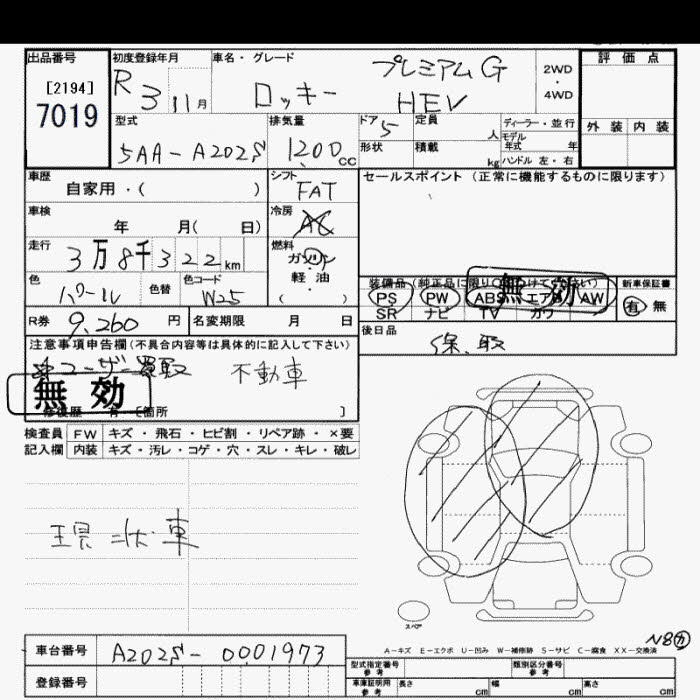 出品番号 初度登録年月 車名・グレード 評価点
[2194] R 3 11月 ロッキー プレミアムG HEV 2WD・4WD
7019
型式 排気量 ドア 定員 ディーラー・並行 外装 内装
5AA-A202S 1200cc 5 人 モデル年式 年
形状 積載 kg ハンドル 左・右
車歴 シフト セールスポイント (正常に機能するものに限ります)
自家用・( ) FAT
車検 冷房
年 月( 日) AC
走行 燃料
3万8千322km ガソリン
軽・油
色 色替 色コード 装備品 新車保証書
パール W25 ( ) PS PW ABS エアB AW 有 無
無効
SR ナビ TV カワ
R券 9,260円 名変期限 月 日 後日品
保、取
注意事項申告欄(不具合内容等は具体的に記入して下さい)
ユーザー買取 不動車
無効
修復歴 有 [箇所 ]
検査員 FW キズ・飛石・ヒビ割・リペア跡・×要
記入欄 内装 キズ・汚レ・コゲ・穴・スレ・キレ・破レ
現状車
スペア
N8カ
A-キズ E-エクボ U-凹み W-補修跡 S-サビ C-腐食 XX-交換済
車台番号 A202S-0001973
型式指定番号 参考 類別区分番号 参考
登録番号 車庫証明用 参考 長さ cm 幅 cm 高さ cm